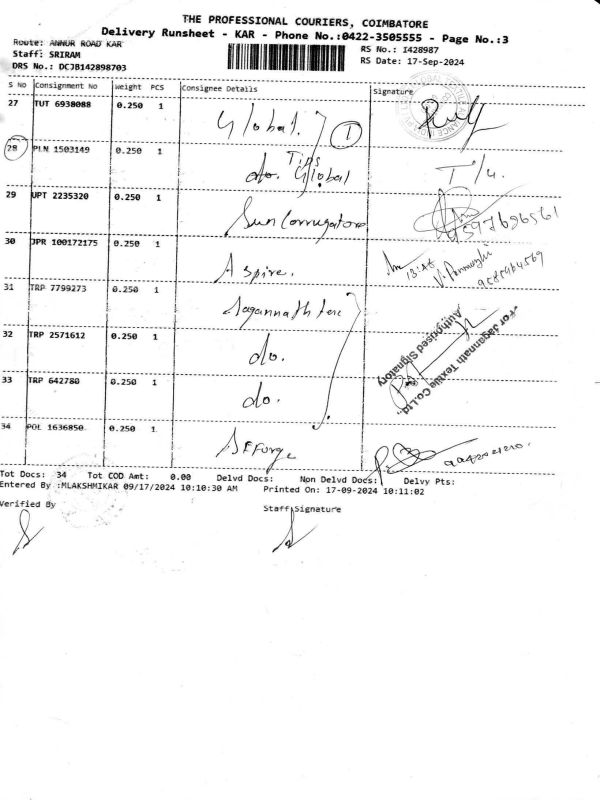 THE PROFESSIONAL COURIERS, COIMBATORE
Delivery Runsheet - KAR - Phone No.:0422-3505555 - Page No.:3
Route: ANNUR ROAD KAR
Staff: SRIRAM
DRS No.: DCJB142898703
RS No.: I428987
RS Date: 17-Sep-2024
S No Consignment No Weight PCS Consignee Details Signature
27 TUT 6938088 0.250 1 Global. 1
28 PLN 1503149 0.250 1 do. Tips Global
29 UPT 2235320 0.250 1 Sun Corrugators
30 JPR 100172175 0.250 1 Aspire.
31 TRP 7799273 0.250 1 Jagannath
32 TRP 2571612 0.250 1 do.
33 TRP 642780 0.250 1 do.
For Jagannath Textile Co.Ltd.,
Authorised Signatory
34 POL 1636850 0.250 1
Tot Docs: 34 Tot COD Amt: 0.00 Delvd Docs: Non Delvd Docs: Delvy Pts:
Entered By :MLAKSHMIKAR 09/17/2024 10:10:30 AM Printed On: 17-09-2024 10:11:02
Verified By Staff Signature